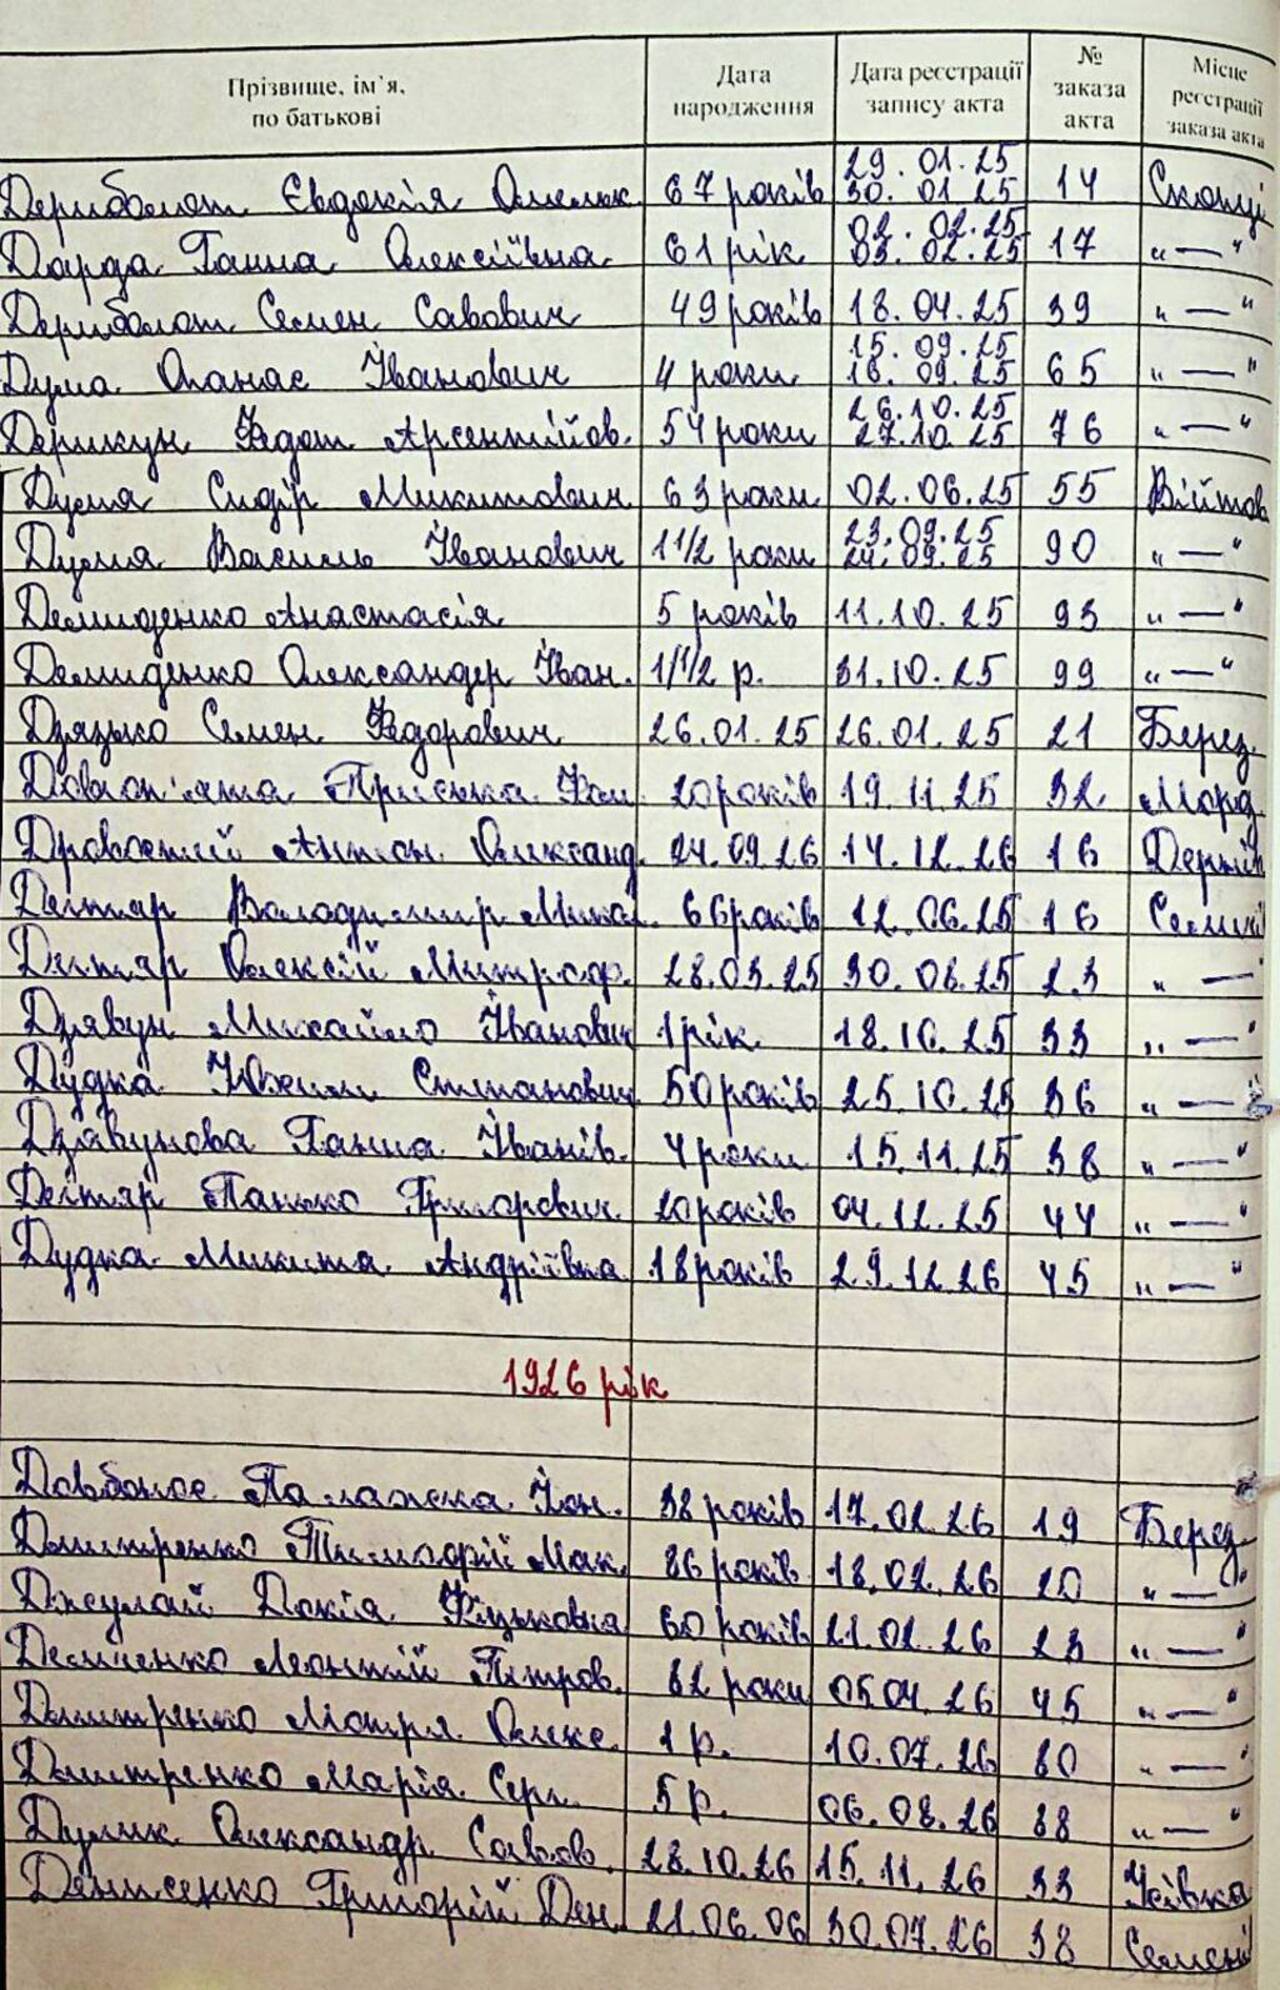 Прізвище, ім`я, по батькові Дата народження Дата реєстрації запису акта № заказа акта Місце реєстрації заказа акта
Дериболот Євдокія Омельк. 67 років 29.01.25 30.01.25 14 Скопці
Дарда Ганна Олексіївна 61 рік 02.02.25 03.02.25 17 „—“
Дериболот Семен Савович 49 років 18.04.25 39 „—“
Дума Опанас Іванович 4 роки 15.09.25 16.09.25 65 „—“
Дерикун Федот Арсентійов. 54 роки 26.10.25 27.10.25 76 „—“
Думя Сидір Микитович 63 роки 02.06.25 55 Війтов
Думя Василь Іванович 1 1/2 роки 23.09.25 24.09.25 90 „—“
Демиденко Анастасія 5 років 11.10.25 93 „—“
Демиденко Олександр Іван. 1/1/2 р. 31.10.25 99 „—“
Дзязько Семен Федорович 26.01.25 26.01.25 21 Берез.
Пріська 20 років 19.11.25 32 Морд.
Антон Олександ. 24.09.26 14.12.26 16
Дегтяр Володимир Мика. 66 років 12.06.25 16
Дегтяр Олексій Митроф. 28.03.25 30.06.25 23 „—“
Дзявун Михайло Іванович 1 рік 18.10.25 33 „—“
Дудка Юхим Степанович 50 років 25.10.25 36 „—“
Дзявунова Ганна Іванів. 4 роки 15.11.25 38 „—“
Дегтяр Панько Григорович 20 років 04.12.25 44 „—“
Дудка Микита Андріївна 18 років 29.12.26 45 „—“
1926 рік
Довбонос Палажка Йон. 38 років 17.02.26 19 Берез.
Дмитренко Тимофій Мак. 86 років 18.02.26 20 „—“
Джулай Докія Фицьковна 60 років 21.02.26 23 „—“
Демченко Леонтій Петров. 62 роки 05.04.26 45 „—“
Дмитренко Мотря Олекс. 1 р. 10.07.26 80 „—“
Дмитренко Марія Серг. 5 р. 06.08.26 88 „—“
Дулик Олександр Савов. 28.10.26 15.11.26 33
Денисенко Григорій Ден. 21.06.06 30.07.26 38 Семені